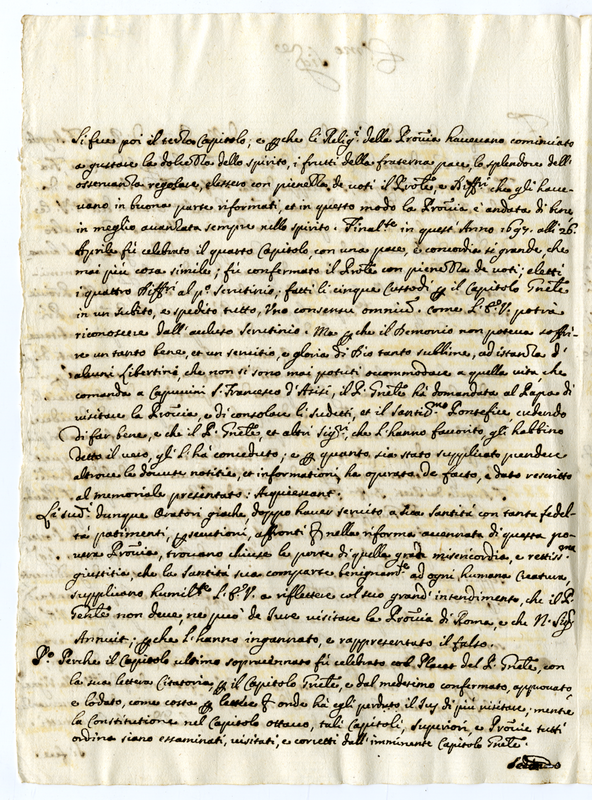 Si fece poi il terzo Capitolo; e perche li Relig.i della Prov.a havevano cominciato
a gustare la dolcezza dello spirito, i frutti della fraterna pace, lo splendore dell'
osservanza regolare, elessero con pienezza de voti il Pro.le e Diff.ri che gli have-
vano in buona parte riformati, et in questo modo la Prov.a è andata di bene
in meglio avanzata sempre nello spirito. Finalm.te in quest'Anno 1697. all'26.
Aprile fù celebrato il quarto Capitolo, con una pace, e concordia si grande, che
mai più cosa simile; fù confermato il Pro.le con pienezza de voti; eletti
i quattro Diff.ri al p.o scrutinio; fatti li cinque Custodi per il Capitolo Gn̄le
in un subito, e spedito tutto, Uno consensu omnium. come S. E. V. potrà
riconoscere dall'accluso Scrutinio. Ma perche il Demonio non poteva soffri-
re un tanto bene, et un servitio, e gloria di Dio tanto sublime, ad istanza d'
alcuni Libertini, che non si sono mai potuti accommodare a quella vita, che
comanda a Capuccini S. Francesco d'Asisi, il P. Gn̄le hà domandato al Papa di
visitare la Prov.a, e di consolare li sudetti, et il Santis.mo Pontefice credendo
di far bene, e che il P. Gn̄le, et altri Sig.ri, che l'hanno favorito, gli habbino
detto il vero, gli l'hà conceduto; e per quanto sia stato supplicato prendere
altrove le dovute notitie, et informationi, ha operato de facto, e dato rescritto
al memoriale presentato: Acquiescant.
Li sud.i dunque Oratori giache, doppo haver servito a Sua Santità con tanta fedel-
tà patimenti, persecutioni, affronti &c nella riforma avanzata di questa po-
vera Provincia, trovano chiuse le porte di quella grāde misericordia, e rettiss.ma
giustitia, che la Santità sua comparte benignam.te ad ogni humana Creatura,
supplicano humil.te S. E. V. a riflettere col suo grand'intendimento, che il P.
Gen̄le non deve, ne può de Jure visitare la Prov.a di Roma, e che N. Sig.re
Annuit; perche l'hanno ingannato, e rappresentato il falso.
P.o Perche il Capitolo ultimo sopraccennato fù celebrato col Placet del P. Gn̄le, con
la sua lettera Citatoria per il Capitolo Gn̄le, e dal medesimo confermato, approvato
e lodato, come costa per lettere &c onde hà egli perduto il Jus di più visitare, mentre
la Constitutione nel Capitolo ottavo, tali Capitoli, Superiori, e Prov.ie tutti
ordina siano essaminati, visitati, e corretti dall'imminente Capitolo Gn̄le.